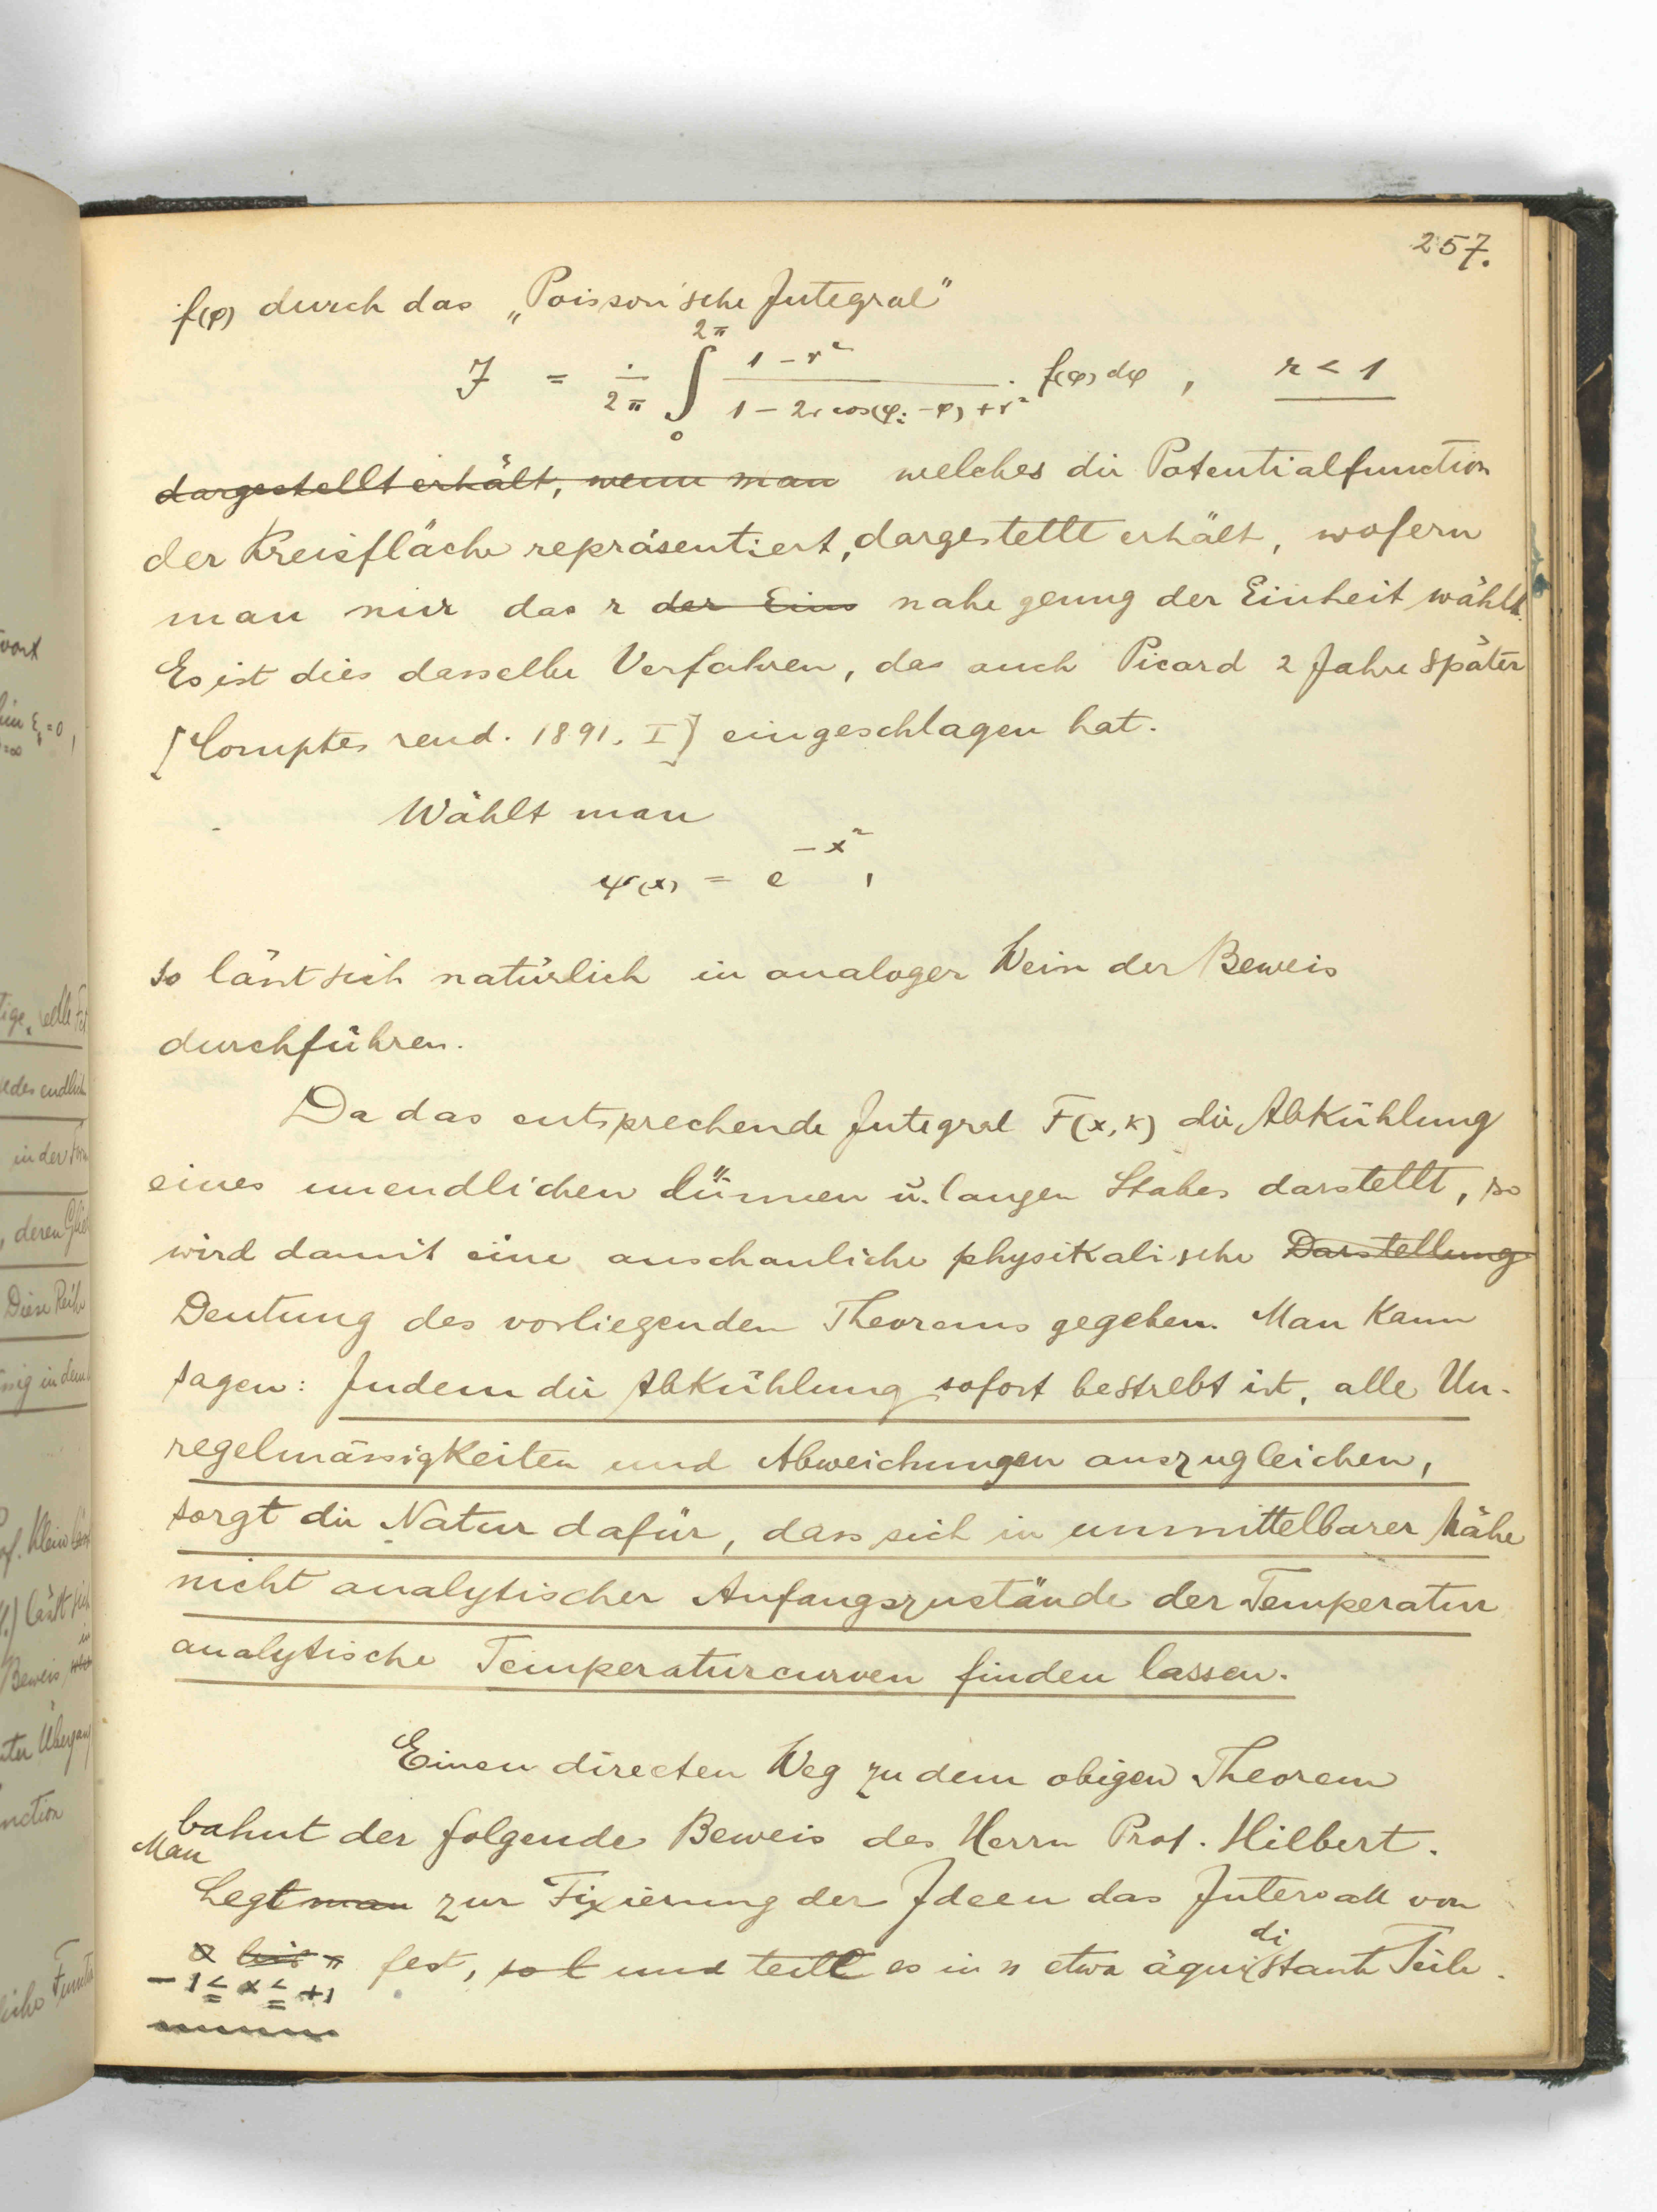 257.
f(φ) durch das „Poisson'sche Integral"
J = 1/2π ∫₀^2π (1 - r²)/(1 - 2r cos(φ₁ - φ) + r²) · f(φ) dφ, r < 1
dargestellt erhält, wenn man welches die Potentialfunction
der Kreisfläche repräsentiert, dargestellt erhält, wofern
man nur das r der Eins nahe genug der Einheit wählt.
Es ist dies dasselbe Verfahren, das auch Picard 2 Jahre später
[Comptes rend. 1891. I] eingeschlagen hat.
Wählt man
ψ(x) = e^-x²,
so lässt sich natürlich in analoger Weise der Beweis
durchführen.
Da das entsprechende Integral F(x,k) die Abkühlung
eines unendlichen dünnen u. langen Stabes darstellt, so
wird damit eine anschauliche physikalische Darstellung
Deutung des vorliegenden Theorems gegeben. Man kann
sagen: Indem die Abkühlung sofort bestrebt ist, alle Un-
regelmässigkeiten und Abweichungen auszugleichen,
sorgt die Natur dafür, dass sich in unmittelbarer Nähe
nicht analytischer Anfangszustände der Temperatur
analytische Temperaturcurven finden lassen.
Einen directen Weg zu dem obigen Theorem
bahnt der folgende Beweis des Herrn Prof. Hilbert.
Man
Legt man zur Fixierung der Ideen das Intervall von
0 bis π fest, so t und teilt es in n etwa äquidistante Teile.
-1 ≤ x ≤ +1